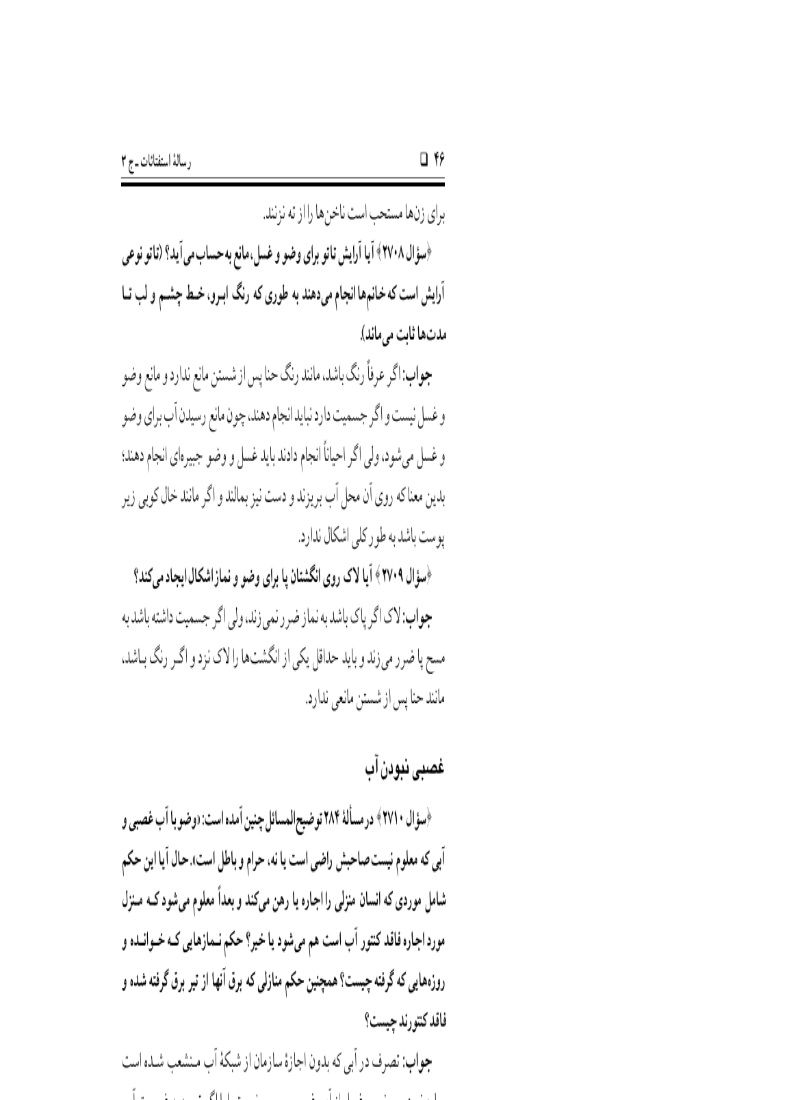 ۴۶ □ رسالهٔ استفتائات ـ ج ۳
برای زن‌ها مستحب است ناخن‌ها را از ته نزنند.
﴿سؤال ۲۷۰۸﴾ آیا آرایش تاتو برای وضو و غسل، مانع به حساب می‌آید؟ (تاتو نوعی
آرایش است که خانم‌ها انجام می‌دهند به طوری که رنگ ابرو، خط چشم و لب تا
مدت‌ها ثابت می‌ماند).
جواب: اگر عرفاً رنگ باشد، مانند رنگ حنا پس از شستن مانع ندارد و مانع وضو
و غسل نیست و اگر جسمیت دارد نباید انجام دهند، چون مانع رسیدن آب برای وضو
و غسل می‌شود، ولی اگر احیاناً انجام دادند باید غسل و وضو جبیره‌ای انجام دهند؛
بدین معنا که روی آن محل آب بریزند و دست نیز بمالند و اگر مانند خال کوبی زیر
پوست باشد به طور کلی اشکال ندارد.
﴿سؤال ۲۷۰۹﴾ آیا لاک روی انگشتان پا برای وضو و نماز اشکال ایجاد می‌کند؟
جواب: لاک اگر پاک باشد به نماز ضرر نمی‌زند، ولی اگر جسمیت داشته باشد به
مسح پا ضرر می‌زند و باید حداقل یکی از انگشت‌ها را لاک نزد و اگر رنگ باشد،
مانند حنا پس از شستن مانعی ندارد.
غصبی نبودن آب
﴿سؤال ۲۷۱۰﴾ در مسألهٔ ۲۸۴ توضیح‌المسائل چنین آمده است: «وضو با آب غصبی و
آبی که معلوم نیست صاحبش راضی است یا نه، حرام و باطل است». حال آیا این حکم
شامل موردی که انسان منزلی را اجاره یا رهن می‌کند و بعداً معلوم می‌شود که منزل
مورد اجاره فاقد کنتور آب است هم می‌شود یا خیر؟ حکم نمازهایی که خوانده و
روزه‌هایی که گرفته چیست؟ همچنین حکم منازلی که برق آنها از تیر برق گرفته شده و
فاقد کنتورند چیست؟
جواب: تصرف در آبی که بدون اجازهٔ سازمان از شبکهٔ آب منشعب شده است